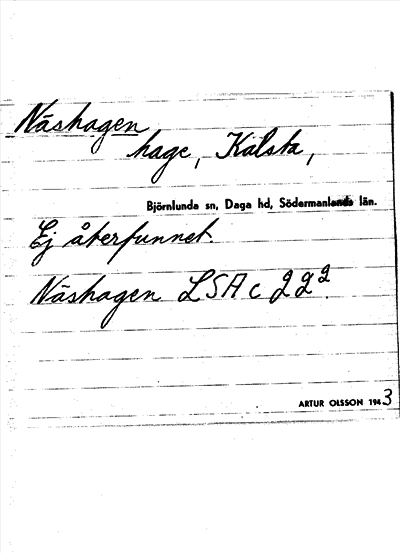 Näshagen
hage, Kalsta,
Björnlunda sn, Daga hd, Södermanlands län.
Ej återfunnet.
Näshagen LSA c 22²
ARTUR OLSSON 1943